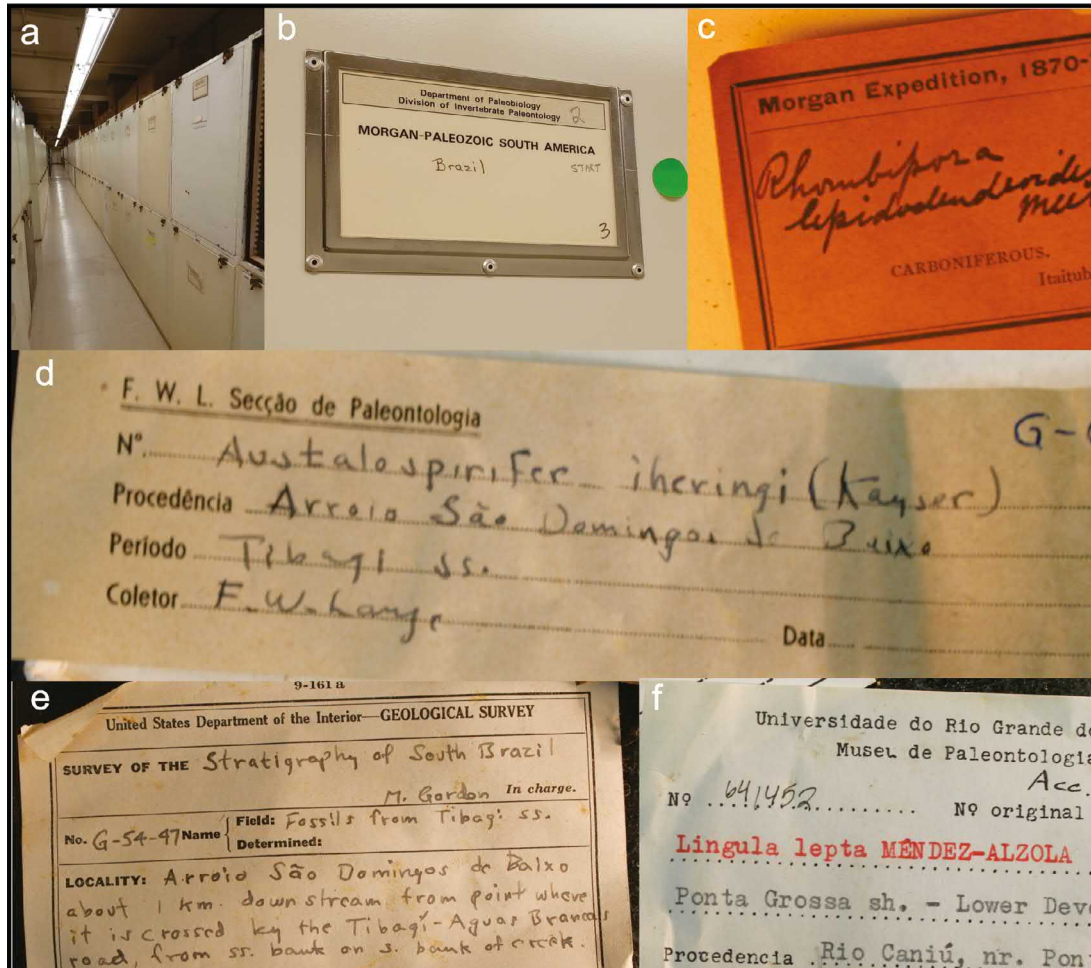 a
b
Department of Paleobiology
Division of Invertebrate Paleontology
2
MORGAN-PALEOZOIC SOUTH AMERICA
Brazil
START
3
c
Morgan Expedition, 1870-
Rhombipora
lepidodendroides
Meek
CARBONIFEROUS.
Itaitub
d
F. W. L. Secção de Paleontologia
G-
Nº. Austalospirifer iheringi (Kayser)
Procedência Arroio São Domingos de Baixo
Período Tibagi ss.
Coletor F. W. Lange
Data
e
9-161 a
United States Department of the Interior—GEOLOGICAL SURVEY
SURVEY OF THE Stratigraphy of South Brazil
M. Gordon In charge.
No. G-54-47 Name Field: Fossils from Tibagi ss.
Determined:
LOCALITY: Arroio São Domingos de Baixo
about 1 km. down stream from point where
it is crossed by the Tibagí-Aguas Brancas
road, from ss. bank on s. bank of creek.
f
Universidade do Rio Grande do
Museu de Paleontologia
Acc.
Nº 641,452 Nº original
Lingula lepta MÉNDEZ-ALZOLA
Ponta Grossa sh. - Lower Deve
Procedencia Rio Caniú, nr. Pon